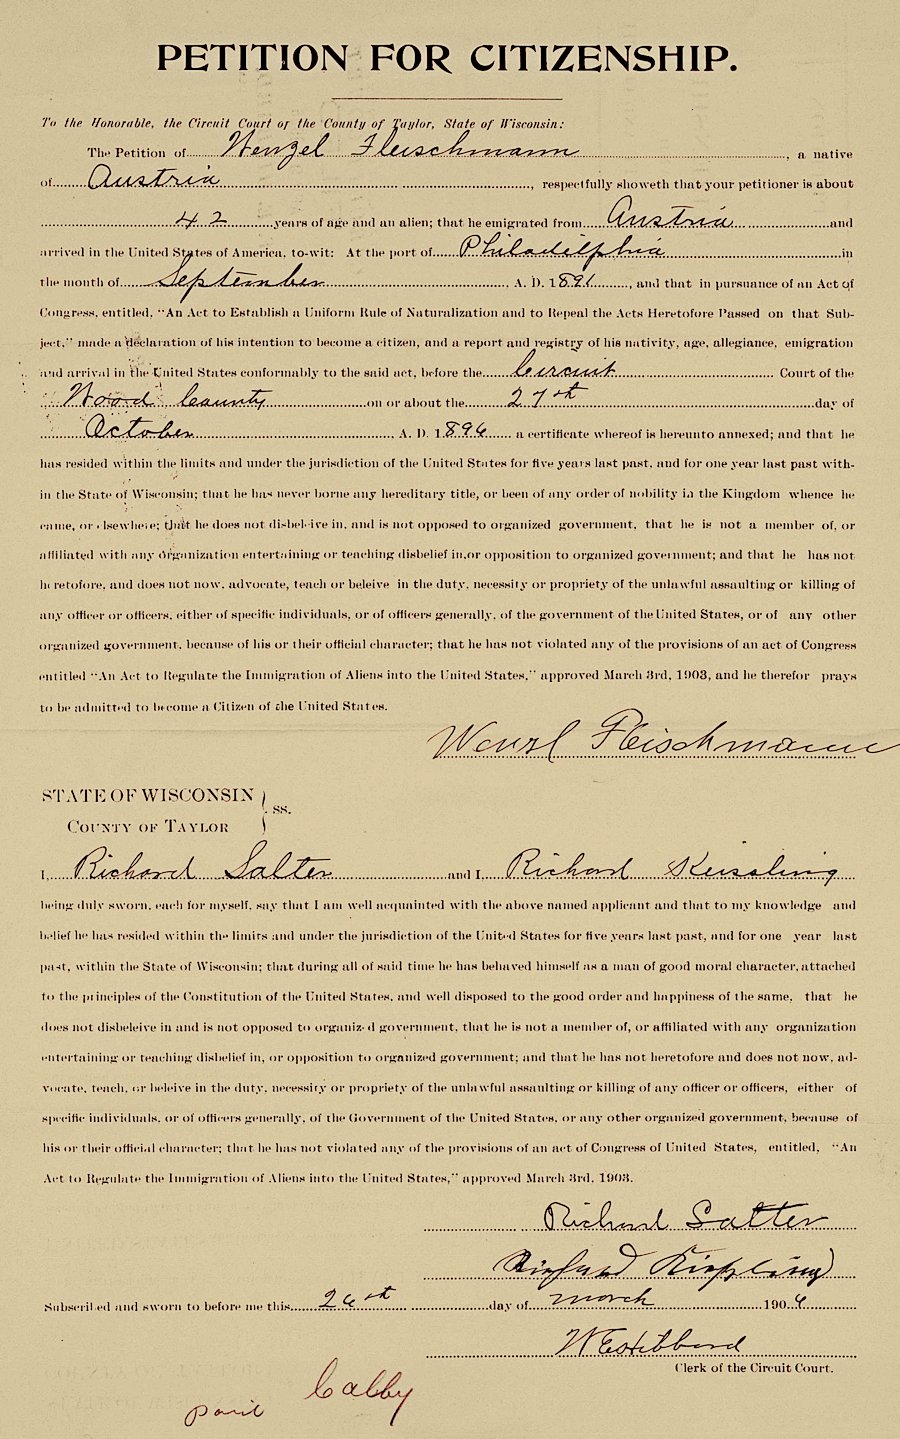 PETITION FOR CITIZENSHIP.
To the Honorable, the Circuit Court of the County of Taylor, State of Wisconsin:
The Petition of Wenzel Fleischmann, a native
of Austria, respectfully showeth that your petitioner is about
42 years of age and an alien; that he emigrated from Austria and
arrived in the United States of America, to-wit: At the port of Philadelphia in
the month of September A. D. 1891, and that in pursuance of an Act of
Congress, entitled, "An Act to Establish a Uniform Rule of Naturalization and to Repeal the Acts Heretofore Passed on that Sub-
ject," made a declaration of his intention to become a citizen, and a report and registry of his nativity, age, allegiance, emigration
and arrival in the United States conformably to the said act, before the Circuit Court of the
Wood County on or about the 27th day of
October, A. D. 1896 a certificate whereof is hereunto annexed; and that he
has resided within the limits and under the jurisdiction of the United States for five years last past, and for one year last past with-
in the State of Wisconsin; that he has never borne any hereditary title, or been of any order of nobility in the Kingdom whence he
came, or elsewhere; that he does not disbeleive in, and is not opposed to organized government, that he is not a member of, or
affiliated with any organization entertaining or teaching disbelief in,or opposition to organized government; and that he has not
heretofore, and does not now, advocate, teach or beleive in the duty, necessity or propriety of the unlawful assaulting or killing of
any officer or officers, either of specific individuals, or of officers generally, of the government of the United States, or of any other
organized government, because of his or their official character; that he has not violated any of the provisions of an act of Congress
entitled "An Act to Regulate the Immigration of Aliens into the United States," approved March 3rd, 1903, and he therefor prays
to be admitted to become a Citizen of the United States.
Wenzl Fleischmann
STATE OF WISCONSIN
ss.
COUNTY OF TAYLOR
I, Richard Salter and I, Richard Keissling
being duly sworn, each for myself, say that I am well acquainted with the above named applicant and that to my knowledge and
belief he has resided within the limits and under the jurisdiction of the United States for five years last past, and for one year last
past, within the State of Wisconsin; that during all of said time he has behaved himself as a man of good moral character, attached
to the principles of the Constitution of the United States, and well disposed to the good order and happiness of the same, that he
does not disbeleive in and is not opposed to organized government, that he is not a member of, or affiliated with any organization
entertaining or teaching disbelief in, or opposition to organized government; and that he has not heretofore and does not now, ad-
vocate, teach, or beleive in the duty, necessity or propriety of the unlawful assaulting or killing of any officer or officers, either of
specific individuals, or of officers generally, of the Government of the United States, or any other organized government, because of
his or their official character; that he has not violated any of the provisions of an act of Congress of United States, entitled, "An
Act to Regulate the Immigration of Aliens into the United States," approved March 3rd, 1903.
Richard Salter
Richard Kießling
Subscribed and sworn to before me this 26th day of March 1906
W E Hibbard
Clerk of the Circuit Court.
paid Calby